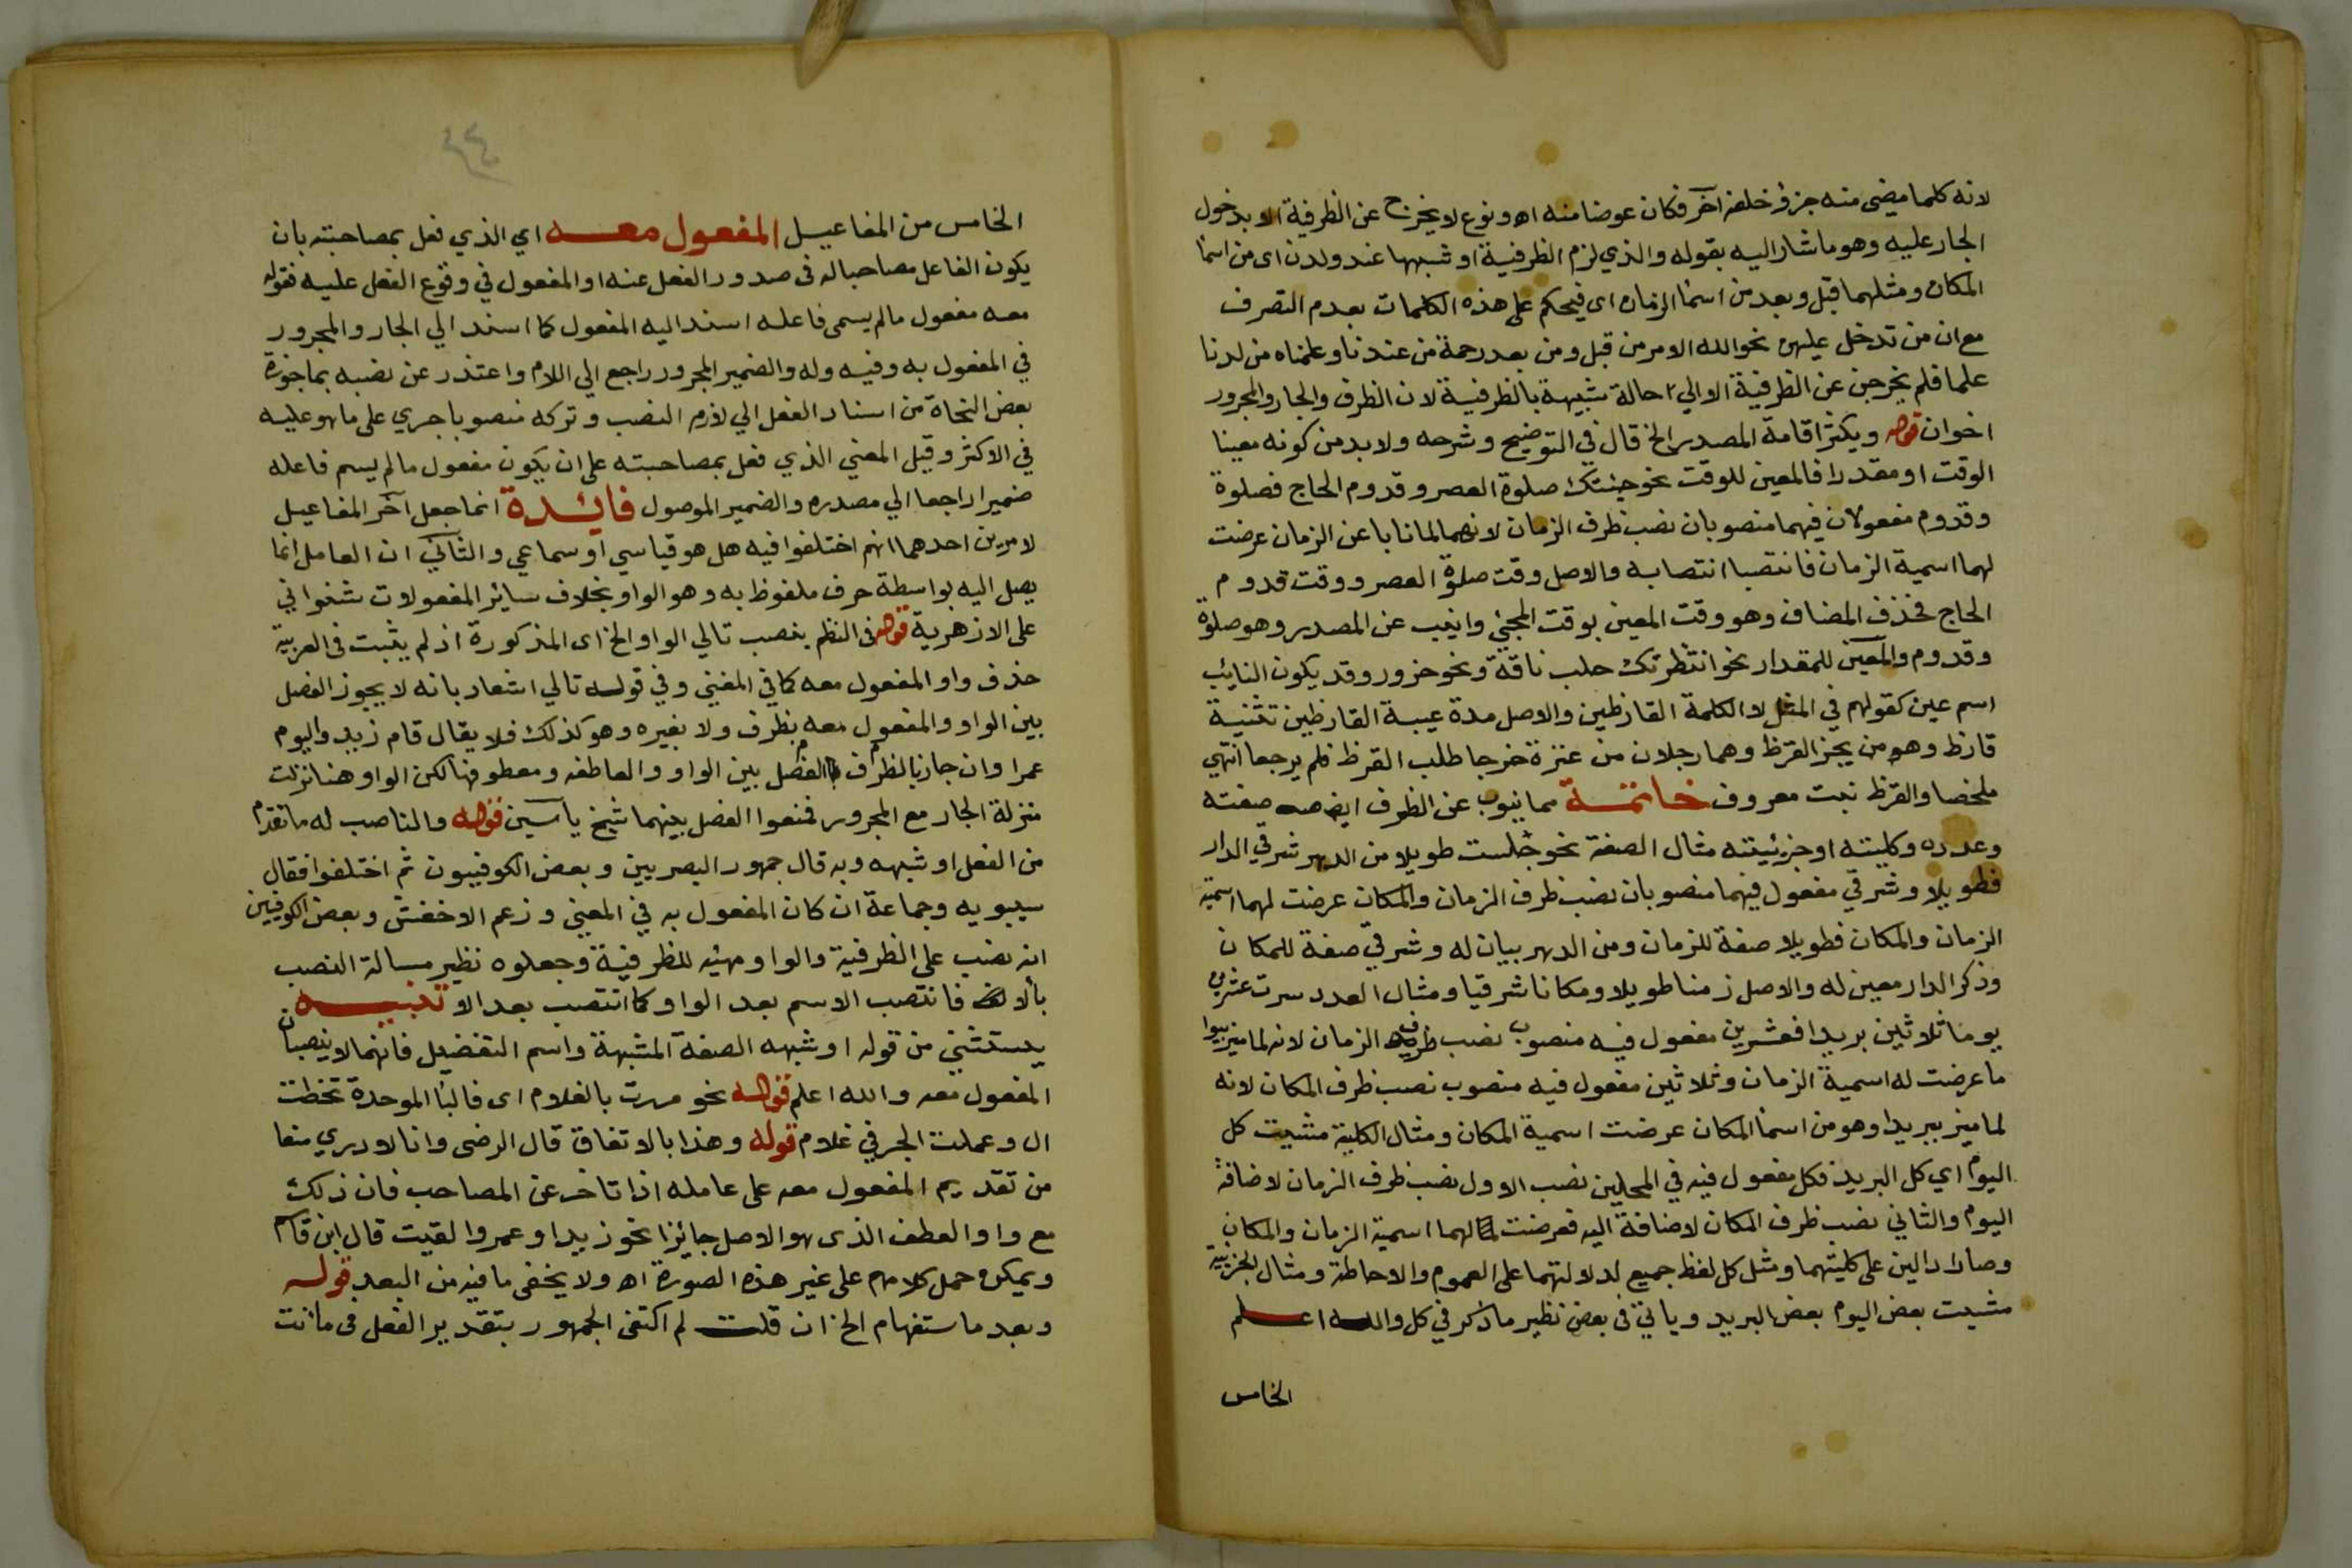 لانه كلما مضى منه جزؤ خلفه آخر فكان عوضا منه اهـ ونوع لا يخرج عن الظرفية الا بدخول
الجار عليه وهو ما شار اليه بقوله والذي لزم الظرفية او شبهها عند ولدن اى من اسما
المكان ومثلهما قبل وبعد من اسما الزمان اى فيحكم على هذه الكلمات بعدم التصرف
مع ان من تدخل عليهن نحو الله الامر من قبل ومن بعد رحمة من عندنا وعلمناه من لدنا
علما فلم يخرجن عن الظرفية الا الي حالة شبيهة بالظرفية لان الظرف والجار والمجرور
اخوان قوله ويكثر اقامة المصدر الخ قال في التوضيح وشرحه ولا بد من كونه معينا
الوقت او مقدرا فالمعين للوقت نحو جئتك صلوة العصر وقدوم الحاج فصلوة
وقدوم مفعولان فيهما منصوبان نصب ظرف الزمان لانهما لما نابا عن الزمان عرضت
لهما اسمية الزمان فانتصبا انتصابه والاصل وقت صلوة العصر ووقت قدوم
الحاج فحذف المضاف وهو وقت المعين بوقت المجئي وانيب عن المصدر وهو صلوة
وقدوم والمعين للمقدار نحو انتظرتك حلب ناقة ونحو جزور وقد يكون النايب
اسم عين كقولهم في المثل لا اكلمة القارظين والاصل مدة غيبة القارظين تثنية
قارظ وهو من يجز القرظ وهما رجلان من عنزة خرجا طلب القرظ فلم يرجعا انتهي
ملخصا والقرظ نبت معروف خاتمة مما ينوب عن الظرف ايضا صفته
وعدده وكليته او جزئيته مثال الصفة نحو جلست طويلا من الدهر شرقي الدار
فطويلا وشرقي مفعول فيهما منصوبان نصب ظرف الزمان والمكان عرضت لهما اسمية
الزمان والمكان فطويلا صفة للزمان ومن الدهر بيان له وشرقي صفة للمكان
وذكر الدار معين له والاصل زمنا طويلا ومكانا شرقيا ومثال العدد سرت عشرين
يوما ثلاثين بريدا فعشرين مفعول فيه منصوب نصب ظرف الزمان لانه لما ميز بيوا
ما عرضت له اسمية الزمان وثلاثين مفعول فيه منصوب نصب ظرف المكان لانه
لما ميز ببريدا وهو من اسما المكان عرضت اسمية المكان ومثال الكلية مشيت كل
اليوم اي كل البريد فكل مفعول فيه في المحلين نصب الاول نصب ظرف الزمان لاضافة
اليوم والثاني نصب ظرف المكان لاضافة اليه فعرضت لهما اسمية الزمان والمكان
وصارا دالين على كليتهما ومثل كل لفظ جميع لدلالتهما على العموم والاحاطة ومثال الجزئية
مشيت بعض اليوم بعض البريد وياتي فى بعض نظير ما ذكر في كل والله اعلم
الخامس
٤٤
الخامس من المفاعيل المفعول معه اي الذي فعل بمصاحبته بان
يكون الفاعل مصاحبا له فى صدور الفعل عنه او المفعول في وقوع الفعل عليه فقوله
معه مفعول مالم يسمى فاعله اسند اليه المفعول كما اسند الي الجار والمجرور
في المفعول به وفيه وله والضمير المجرور راجع الي اللام واعتذر عن نصبه بما جوزه
بعض النحاة من اسناد الفعل الي لازم النصب وتركه منصوبا جري على ما هو عليه
في الاكثر وقيل المعني الذي فعل بمصاحبته على ان يكون مفعول مالم يسم فاعله
ضميرا راجعا الي مصدره والضمير الموصول فايدة انما جعل آخر المفاعيل
لامرين احدهما انهم اختلفوا فيه هل هو قياسي او سماعي والثاني ان العامل انما
يصل اليه بواسطة حرف ملفوظ به وهو الواو بخلاف ساير المفعولات شنواني
على الازهرية قوله فى النظم ينصب تالي الواو الخ اى المذكورة اذ لم يثبت فى العربية
حذف واو المفعول معه كما في المغني وفي قوله تالي اشعار بانه لا يجوز الفصل
بين الواو والمفعول معه بظرف ولا بغيره وهو كذلك فلا يقال قام زيد واليوم
عمرا وان جاز بالظرف الفصل بين الواو والعاطفه ومعطوفها لكن الواو هنا نزلت
منزلة الجار مع المجرور فمنعوا الفصل بينهما شيخ ياسين قوله والناصب له ما تقدم
من الفعل او شبهه وبه قال جمهور البصريين وبعض الكوفييون ثم اختلفوا فقال
سيبويه وجماعة ان كان المفعول به في المعني وزعم الاخفش وبعض الكوفيين
انه نصب على الظرفية والواو مهيئه للظرفية وجعلوه نظير مسالة النصب
بألا فانتصب الاسم بعد الواو كما انتصب بعد الا تنبيه
يستثني من قوله او شبهه الصفة المشبهة واسم التفضيل فانهما لا ينصبان
المفعول معه والله اعلم قوله نحو مررت بالغلام اى فالبا الموحدة تخطت
ال وعملت الجر في غلام قوله وهذا بالاتفاق قال الرضى وانا لا ادري منعا
من تقديم المفعول معه على عامله اذا تاخر عن المصاحب فان ذلك
مع واو العطف الذى هو الاصل جائزا نحو زيدا وعمروا لقيت قال ابن قاسم
ويمكن حمل كلامهم على غير هذه الصورة اهـ ولا يخفى ما فيه من البعد قوله
وبعد ما ستفهام الخ ان قلت لم اكتفى الجمهور بتقدير الفعل فى ما انت